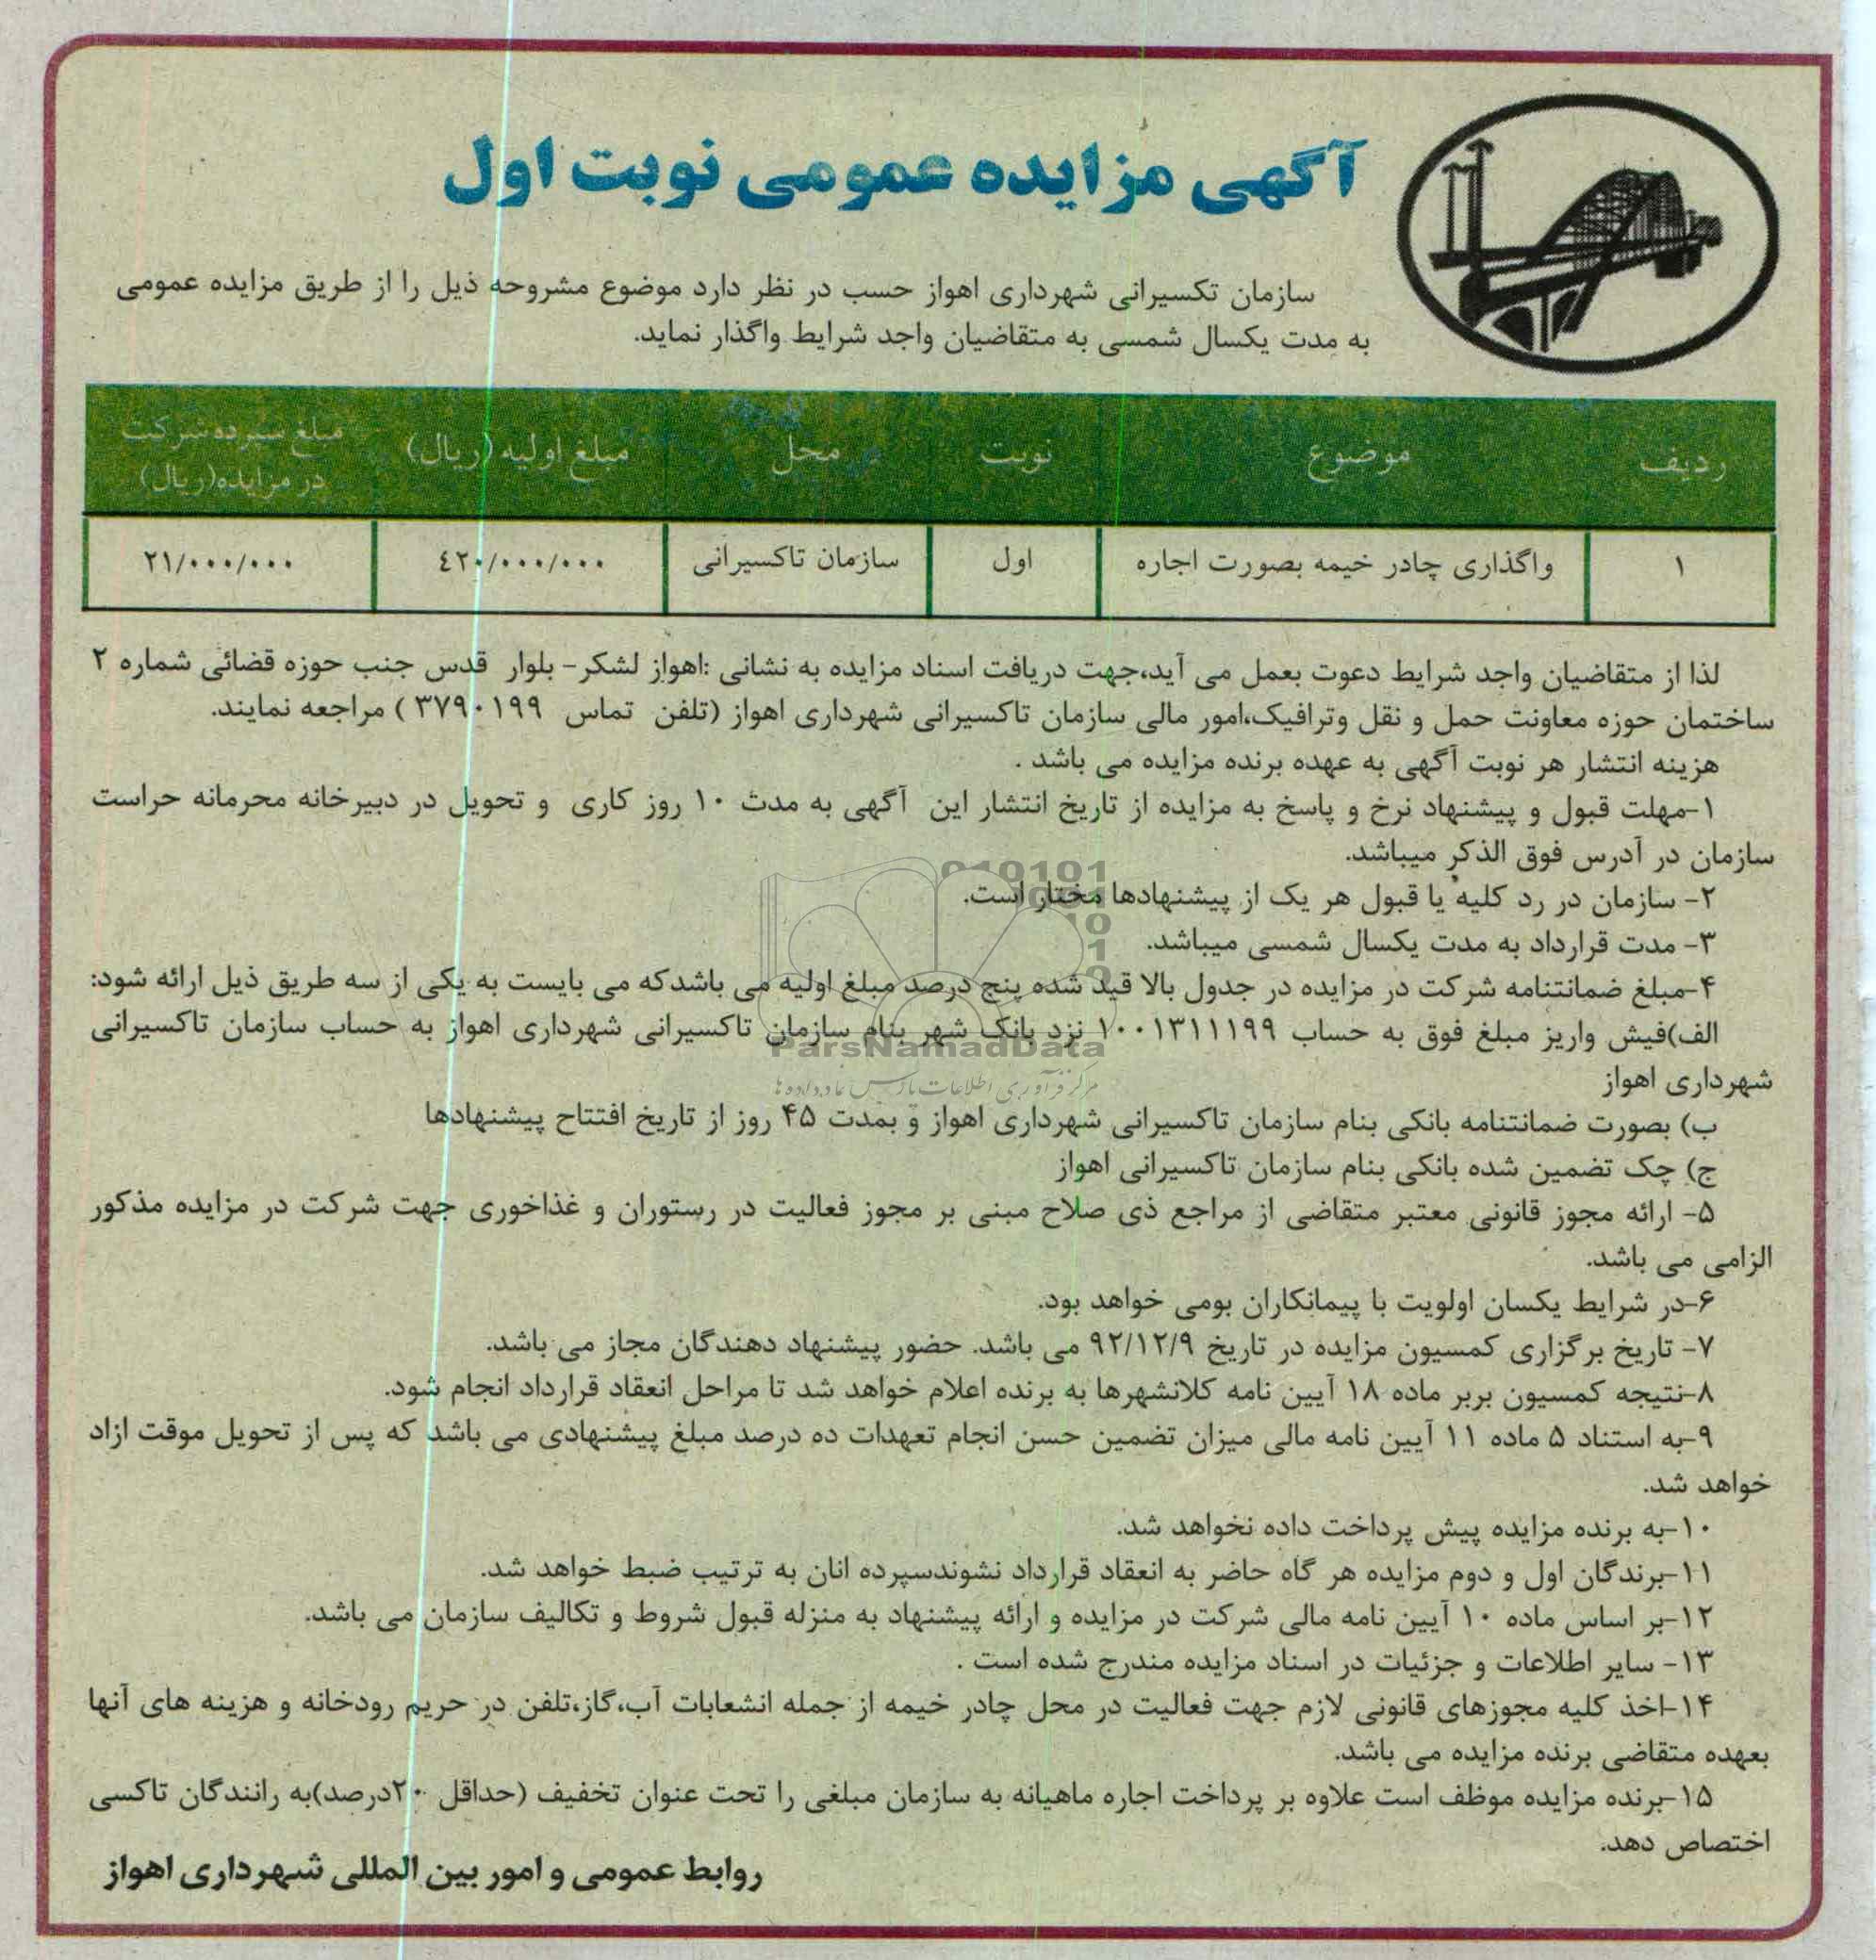 آگهی مزایده عمومی نوبت اول
سازمان تکسیرانی شهرداری اهواز حسب در نظر دارد موضوع مشروحه ذیل را از طریق مزایده عمومی
به مدت یکسال شمسی به متقاضیان واجد شرایط واگذار نماید.
ردیف موضوع نوبت محل مبلغ اولیه (ریال) مبلغ سپرده شرکت
در مزایده(ریال)
۱ واگذاری چادر خیمه بصورت اجاره اول سازمان تاکسیرانی ٤٢٠/٠٠٠/٠٠٠ ٢١/٠٠٠/٠٠٠
لذا از متقاضیان واجد شرایط دعوت بعمل می آید،جهت دریافت اسناد مزایده به نشانی :اهواز لشکر- بلوار قدس جنب حوزه قضائی شماره ۲
ساختمان حوزه معاونت حمل و نقل وترافیک،امور مالی سازمان تاکسیرانی شهرداری اهواز (تلفن تماس ۳۷۹۰۱۹۹ ) مراجعه نمایند.
هزینه انتشار هر نوبت آگهی به عهده برنده مزایده می باشد .
۱-مهلت قبول و پیشنهاد نرخ و پاسخ به مزایده از تاریخ انتشار این آگهی به مدت ۱۰ روز کاری و تحویل در دبیرخانه محرمانه حراست
سازمان در آدرس فوق الذکر میباشد.
۲- سازمان در رد کلیه یا قبول هر یک از پیشنهادها مختار است.
۳- مدت قرارداد به مدت یکسال شمسی میباشد.
۴-مبلغ ضمانتنامه شرکت در مزایده در جدول بالا قید شده پنج درصد مبلغ اولیه می باشدکه می بایست به یکی از سه طریق ذیل ارائه شود:
الف)فیش واریز مبلغ فوق به حساب ۱۰۰۱۳۱۱۱۹۹ نزد بانک شهر بنام سازمان تاکسیرانی شهرداری اهواز به حساب سازمان تاکسیرانی
ParsNamadData
شهرداری اهواز
مرکز فرآوری اطلاعات پارس نماد داده ها
ب) بصورت ضمانتنامه بانکی بنام سازمان تاکسیرانی شهرداری اهواز و بمدت ۴۵ روز از تاریخ افتتاح پیشنهادها
ج) چک تضمین شده بانکی بنام سازمان تاکسیرانی اهواز
۵- ارائه مجوز قانونی معتبر متقاضی از مراجع ذی صلاح مبنی بر مجوز فعالیت در رستوران و غذاخوری جهت شرکت در مزایده مذکور
الزامی می باشد.
۶-در شرایط یکسان اولویت با پیمانکاران بومی خواهد بود.
۷- تاریخ برگزاری کمسیون مزایده در تاریخ ۹۲/۱۲/۹ می باشد. حضور پیشنهاد دهندگان مجاز می باشد.
۸-نتیجه کمسیون بربر ماده ۱۸ آیین نامه کلانشهرها به برنده اعلام خواهد شد تا مراحل انعقاد قرارداد انجام شود.
۹-به استناد ۵ ماده ۱۱ آیین نامه مالی میزان تضمین حسن انجام تعهدات ده درصد مبلغ پیشنهادی می باشد که پس از تحویل موقت ازاد
خواهد شد.
۱۰-به برنده مزایده پیش پرداخت داده نخواهد شد.
۱۱-برندگان اول و دوم مزایده هر گاه حاضر به انعقاد قرارداد نشوندسپرده انان به ترتیب ضبط خواهد شد.
۱۲-بر اساس ماده ۱۰ آیین نامه مالی شرکت در مزایده و ارائه پیشنهاد به منزله قبول شروط و تکالیف سازمان می باشد.
۱۳- سایر اطلاعات و جزئیات در اسناد مزایده مندرج شده است .
۱۴-اخذ کلیه مجوزهای قانونی لازم جهت فعالیت در محل چادر خیمه از جمله انشعابات آب،گاز،تلفن در حریم رودخانه و هزینه های آنها
بعهده متقاضی برنده مزایده می باشد.
۱۵-برنده مزایده موظف است علاوه بر پرداخت اجاره ماهیانه به سازمان مبلغی را تحت عنوان تخفیف (حداقل ۲۰درصد)به رانندگان تاکسی
اختصاص دهد.
روابط عمومی و امور بین المللی شهرداری اهواز